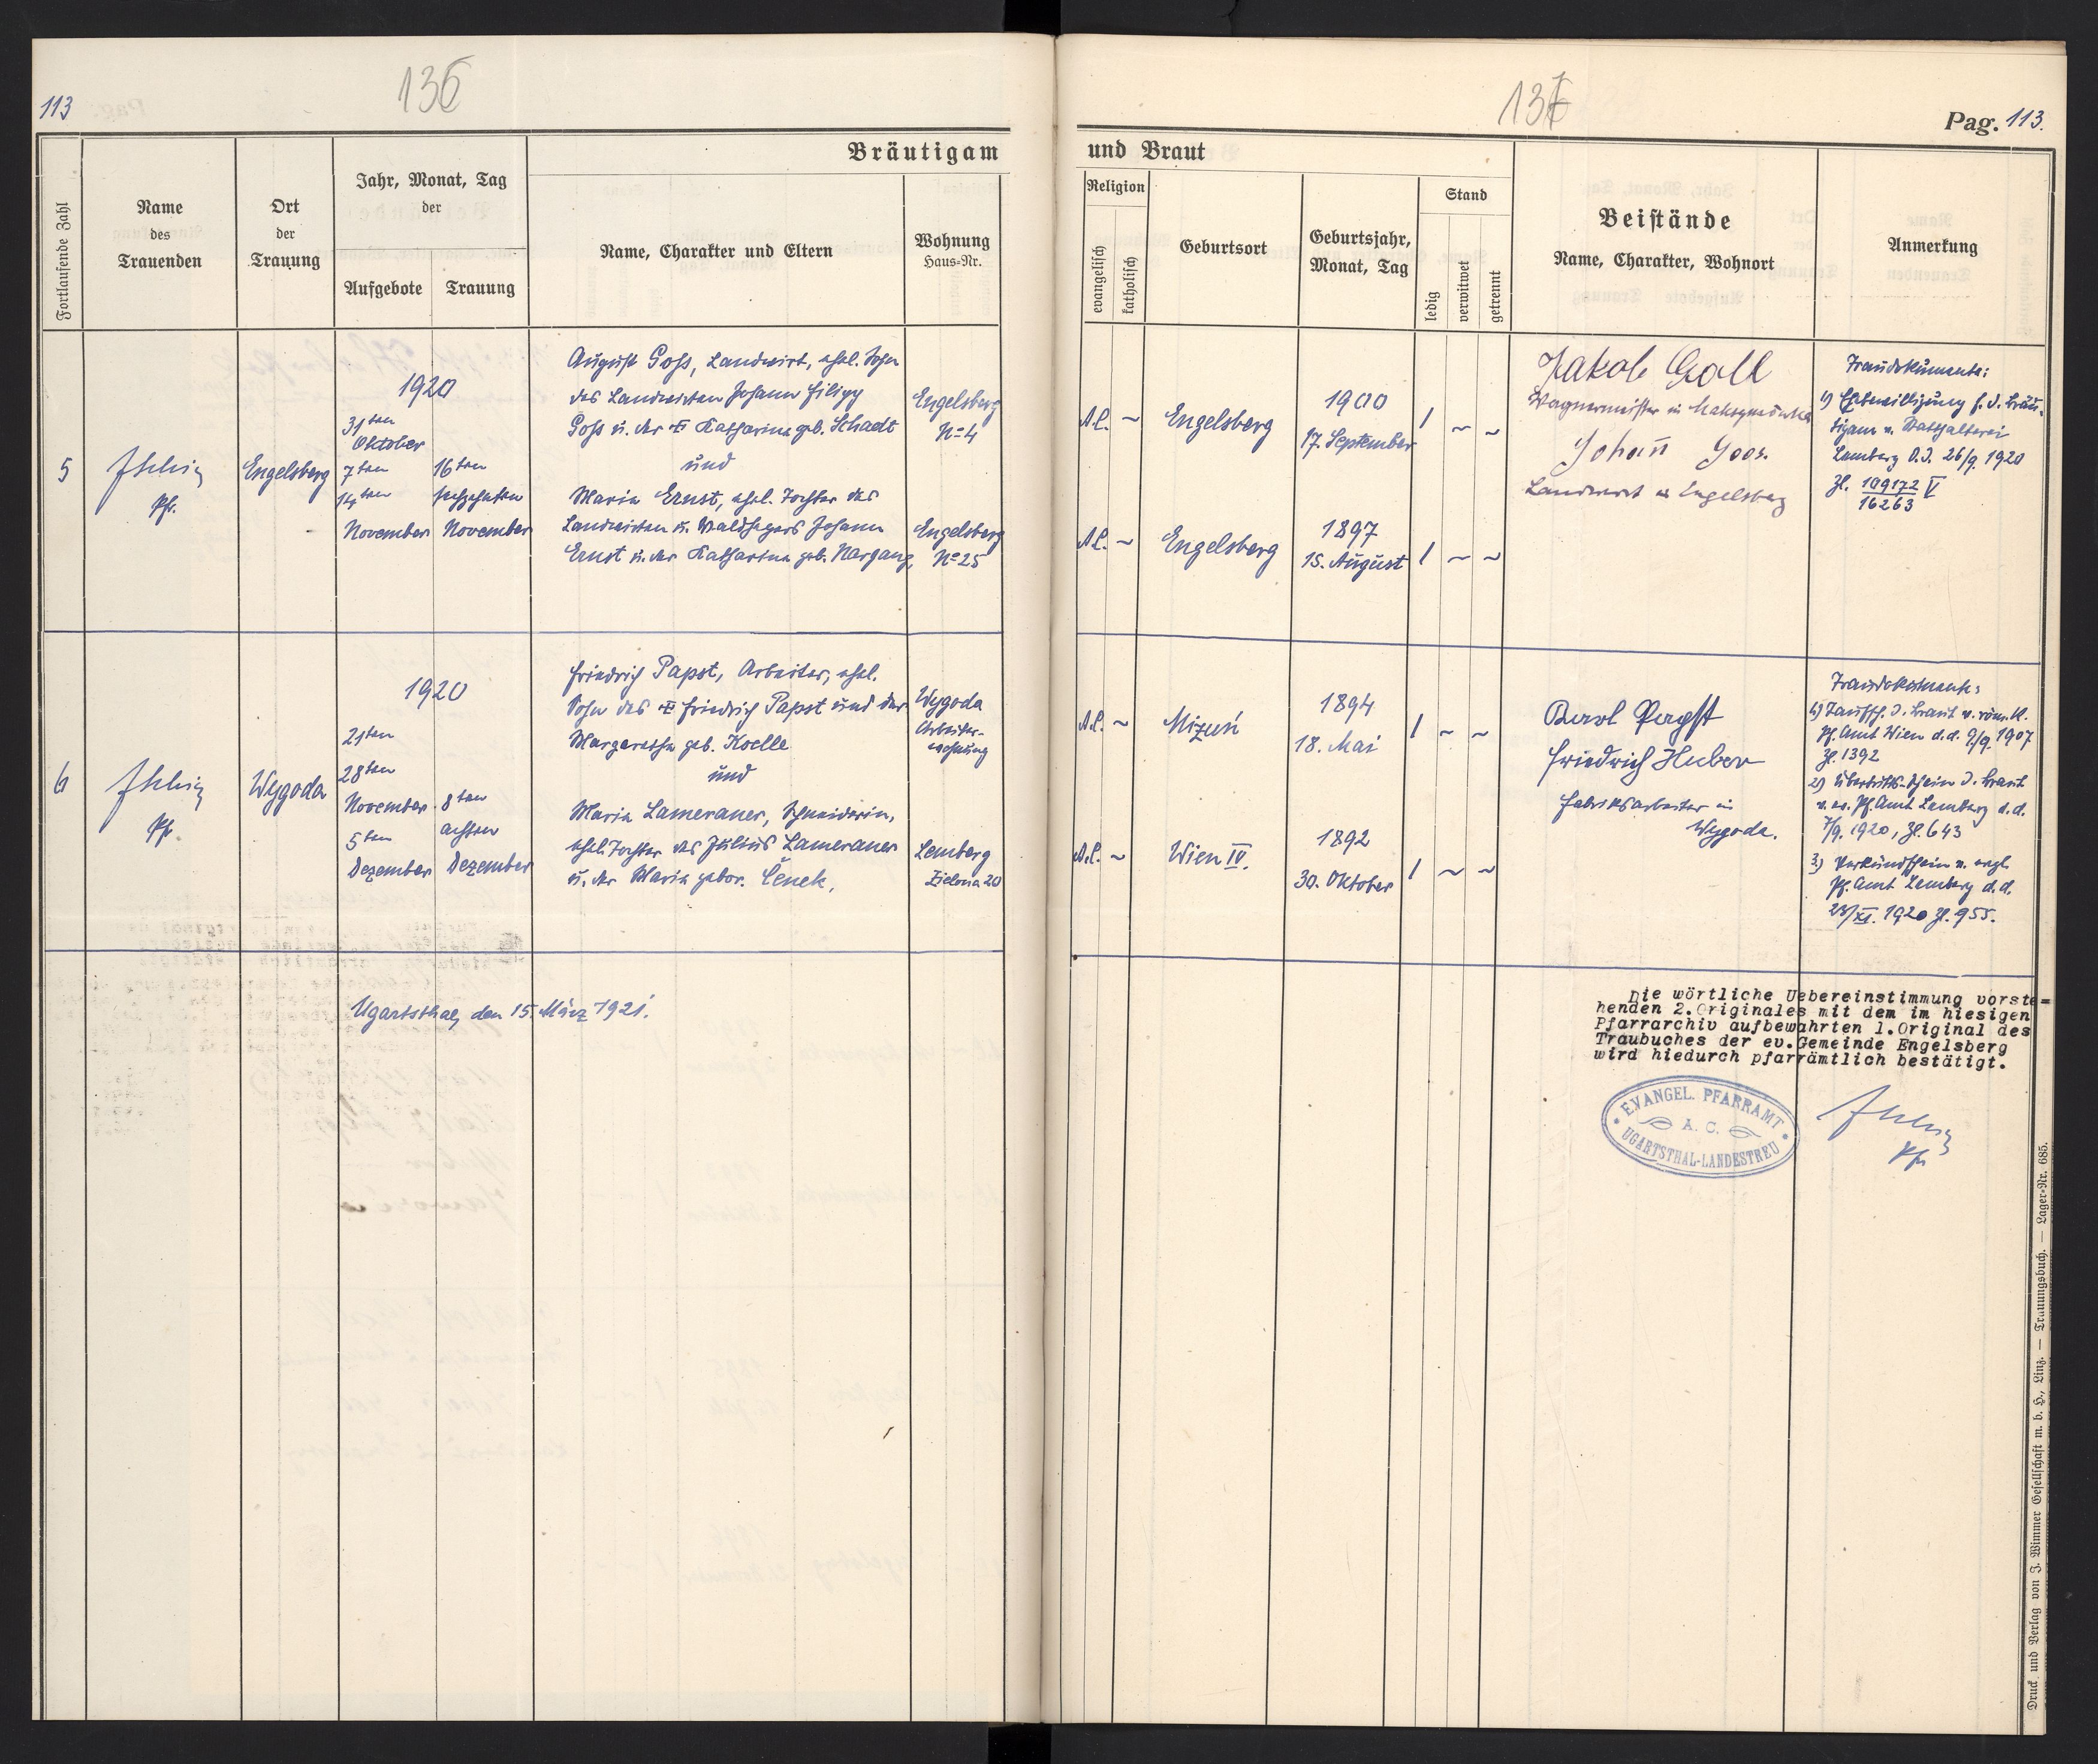 113
136
137
Pag. 113.
Bräutigam
und Braut
Fortlaufende Zahl
Name
des
Trauenden
Ort
der
Trauung
Jahr, Monat, Tag
der
Aufgebote
Trauung
Name, Charakter und Eltern
Wohnung
Haus-Nr.
Religion
evangelisch
katholisch
Geburtsort
Geburtsjahr,
Monat, Tag
Stand
ledig
verwitwet
getrennt
Beistände
Name, Charakter, Wohnort
Anmerkung
5
Pfr.
Engelsberg
1920
31ten
Oktober
7ten
14ten
November
16ten
sechzehnten
November
August Goß, Landwirt, ehel. Sohn
des Landwirten Johann Filipp
Goß u. der Katharina geb. Schadt
und
Maria Ernst, ehel. Tochter des
Landwirten u. Waldhegers Johann
Ernst u. der Katharina geb. Nargang,
Engelsberg
No 4
Engelsberg
No 25
A.C. ~
Engelsberg
1900
17. September
/ ~ ~
A.C. ~
Engelsberg
1897
15. August
/ ~ ~
Jakob Goll
Wagnermeister in Maksymówka
Johann Goos.
Landwirt in Engelsberg
Traudokumente:
1) Ehebewilligung f. d. Bräu-
tigam v. Statthalterei
Lemberg d.d. 26/9. 1920
Zl. 109172 V
16263
6
Pfr.
Wygoda
1920
21ten
28ten
November
5ten
Dezember
8ten
achten
Dezember
Friedrich Papst, Arbeiter, ehel.
Sohn des Friedrich Papst und der
Margaretha geb. Koelle
und
Maria Lameraner, Schneiderin,
ehel. Tochter des Julius Lameraner
u. der Maria gebor. Čenek,
Wygoda
Arbeiter-
wohnung
Lemberg
Zielona 20
A.C. ~
Mizuń
1894
18. Mai
/ ~ ~
A.C. ~
Wien IV.
1892
30. Oktober
/ ~ ~
Karl Papst
Friedrich Huber
Fabriksarbeiter in
Wygoda.
Traudokumente:
1) Taufsch. d. Braut v. röm. k.
Pf. Amt Wien d.d. 9/9. 1907
Zl. 1392
2) Übertritts-Schein d. Braut
v. ev. Pf. Amt Lemberg d.d.
7/9. 1920, Zl. 643
3) Verkündschein v. evgl.
Pf. Amt Lemberg d.d.
XI. 1920 Zl. 955.
Ugartsthal, den 15. März 1921.
Die wörtliche Uebereinstimmung vorste=
henden 2.Originales mit dem im hiesigen
Pfarrarchiv aufbewahrten 1.Original des
Traubuches der ev.Gemeinde Engelsberg
wird hiedurch pfarrämtlich bestätigt.
EVANGEL. PFARRAMT
A. C.
UGARTSTHAL-LANDESTREU
Pfr
Druck und Verlag von J. Wimmer Gesellschaft m. b. H., Linz. — Trauungsbuch. — Lager-Nr. 685.